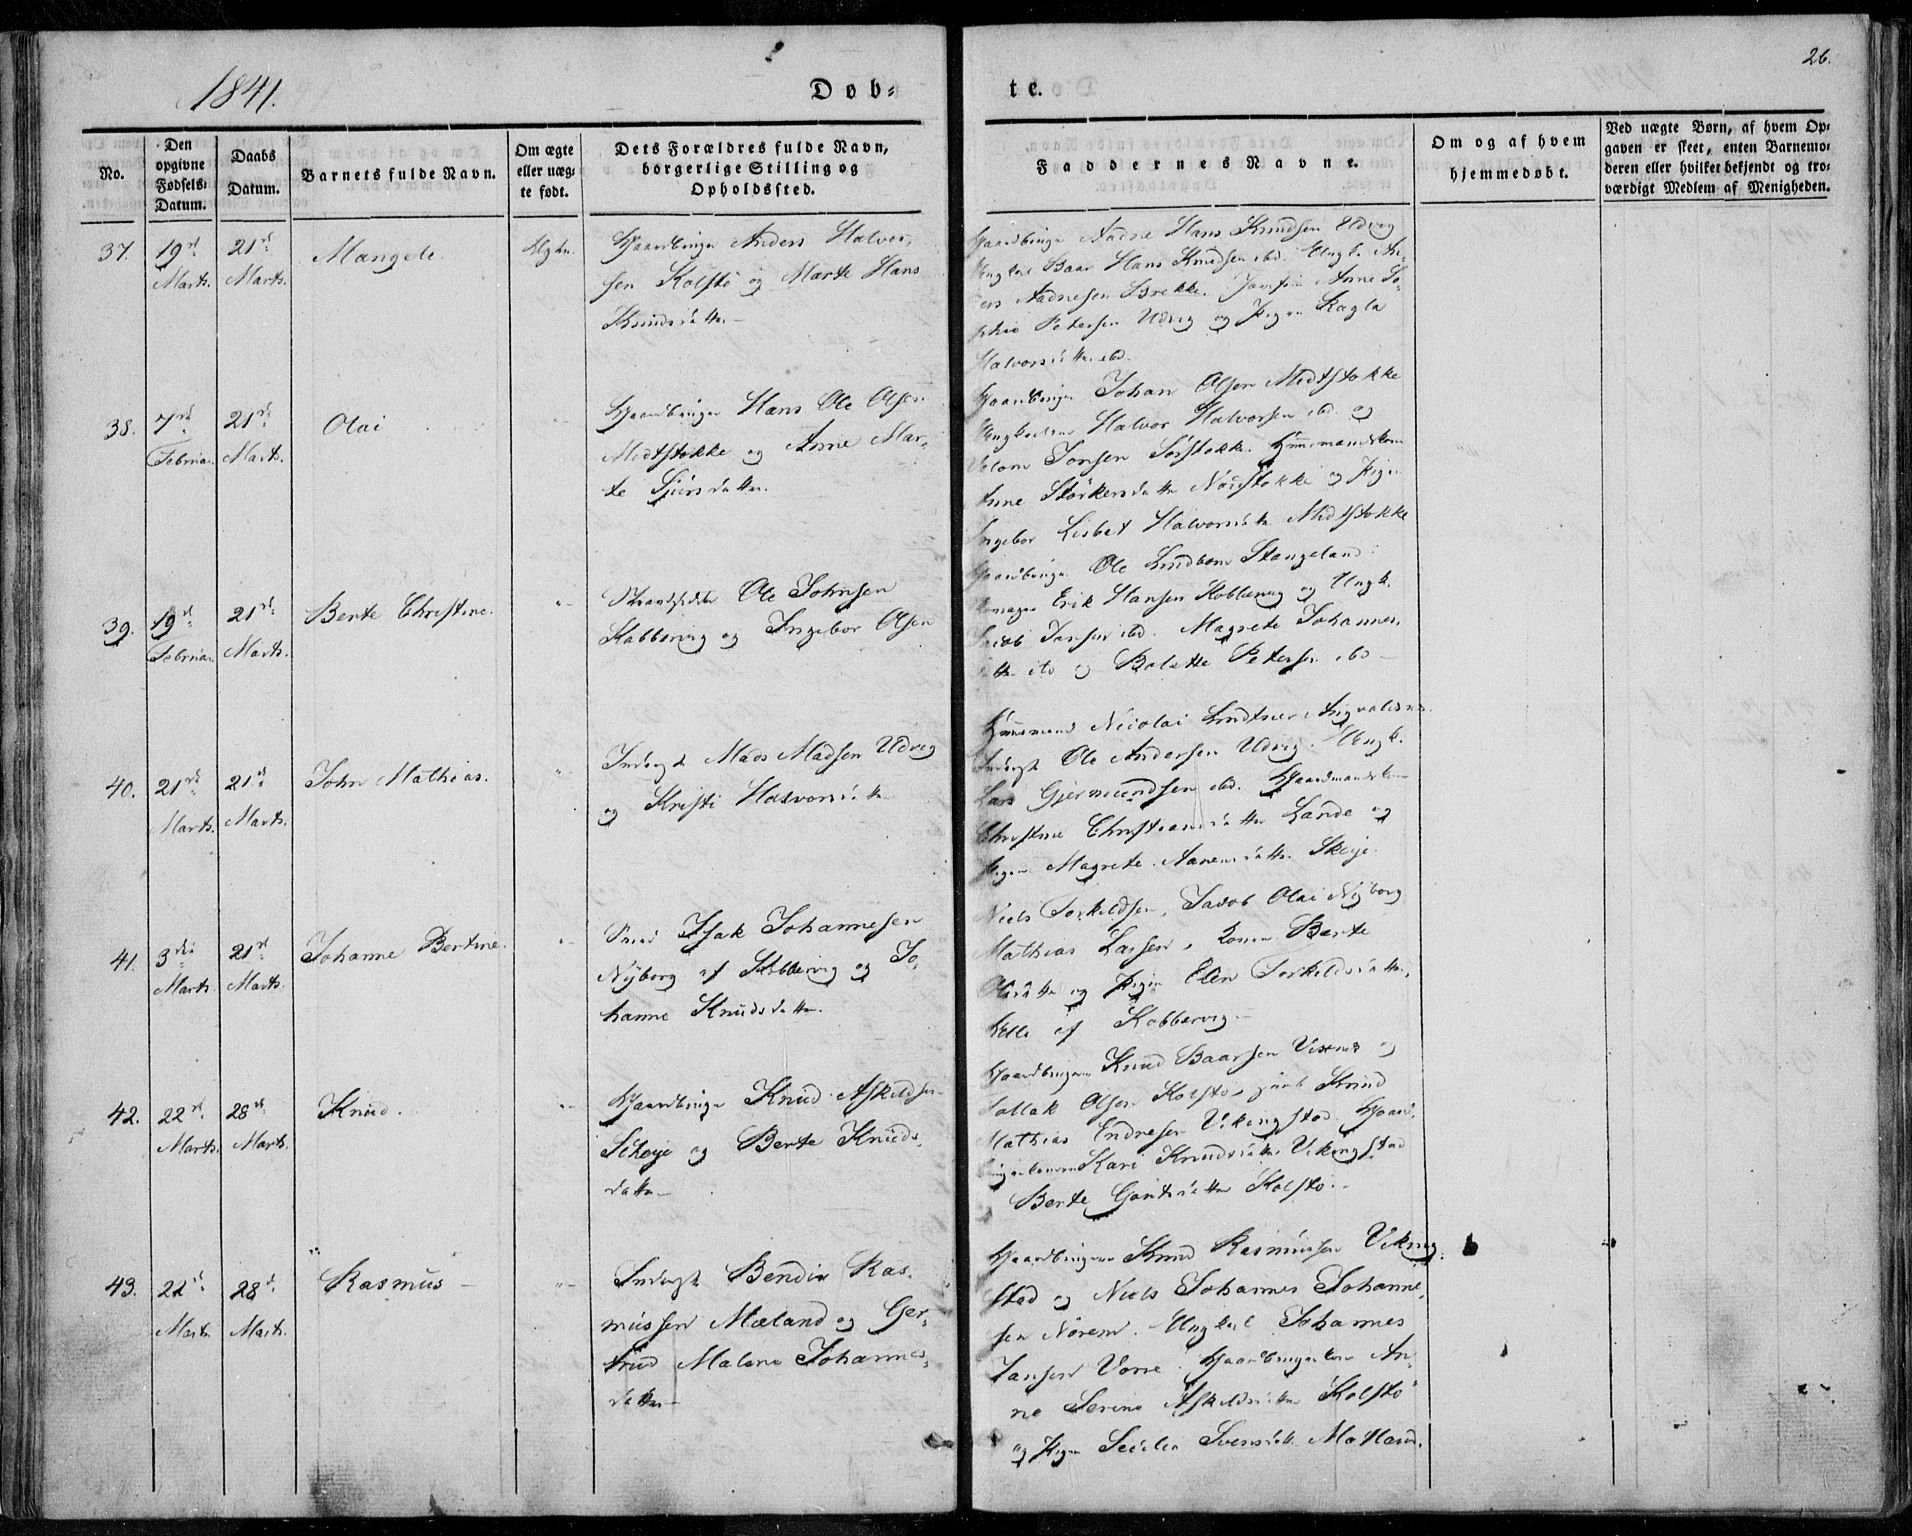 1841.
Døb=
te.
26.
No.
Den opgivne Fødsels=Datum.
Daabs Datum.
Barnets fulde Navn.
Om ægte eller uæg=te født.
Dets Forældres fulde Navn, borgerlige Stilling og Opholdssted.
Faddernes Navne.
Om og af hvem hjemmedøbt.
Ved uægte Børn, af hvem Op=
gaven er skeet, enten Barnemo=
deren eller hvilket bekjendt og tro=
værdigt Medlem af Menigheden.
37. 19de Marts. 21de Marts. Mangele.
Gaardbruger Anders Halvor=
sen Kolstø og Marte Hans
Knudsdatter
Hans Knudsen Udvig
Ungkarl Baar Hans Knudsen ibd. Ungk. An=
ders Aadnesen Brekke. Jomfru Anne So=
phie Petersen Udvig og Pigen Ragla
Halvorsdatter ibd.
38. 7de Februar. 21de Marts. Olai
Gaardbruger Hans Ole Olsen
Midtstokke og Anne Mar=
te Sjursdatter.
Gaardbruger Johan Olsen Midtstokke
Halvor Halvorsen ibd. og
Jonsen Sørstokke. Huusmandskone
Anne Størkersdatter Nordstokke og Pigen
Ingebor Lisbet Halvorsdatter Midtstokke
39. 19de Februar. 21de Marts. Berte Christine.
Strandsidder Ole Johnsen
Kobbervig og Ingebor Olsen
Gaardbruger Ole Lindboe Stangeland
Erik Hansen Kobbervig og Ungk.
Jacob Jansen ibd. Magrete Johannes=
datter ibd og Bolette Petersen ibd
40. 21de Marts. 21de Marts. John Mathias.
Inderst Mads Madsen Udvig
og Kristi Halvorsdatter
Huusmand Nicolai Lindtner
Inderst Ole Andersen Udvig. Ungk.
Lars Gjermundsen ibd. Gaardmandskone
Christine Christiansdatter Lande og
Pigen Magrete Aanensdatter Skeije.
41. 3die Marts. 21de Marts. Johanne Bertine.
Smed Isak Johannesen
Nyborg af Kobbervig og Jo=
hanne Knudsdatter.
Niels Torkildsen, Jacob Olai Nyborg
Mathias Larsen, Konen Berte
Olsdatter og Pigen Elen Torkildsdatter,
alle af Kobbervig
42. 22de Marts. 28de Marts. Knud.
Gaardbruger Knud Askildsen
Skeije og Berte Knuds=
datter
Gaardbrugerne Knud Baarsen Visnes og
Tollak Olsen Kolstø, samt Knud
Mathias Endresen Vikingstad. Gaard=
brugerkonen Kari Knudsdatter Vikingstad
Berte Gautsdatter Kolstø.
43. 22de Marts. 28de Marts. Rasmus
Inderst Bendix Ras=
mussen Mæland og Ger=
trud Malene Johannes=
datter
Gaardbrugerne Knud Rasmussen Viking=
stad og Niels Johannes Johanne=
sen Norem. Ungkarl Johannes
Jansen Vorre. Gaardbrugerkone An=
ne Serine Askildsdatter Kolstø
og Pigen Secilia Svensdatter Mæland.